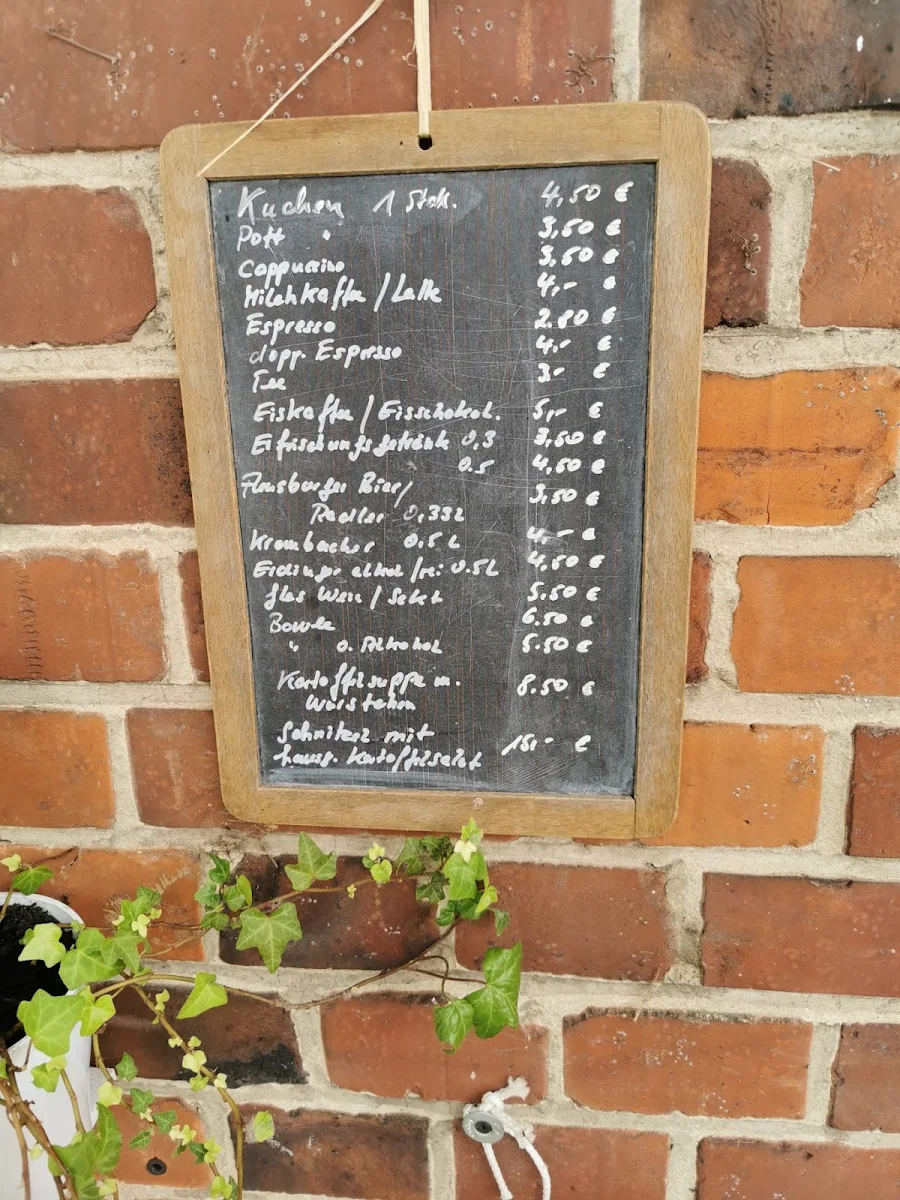 Kuchen 1 Stck. 4,50 €
Pott " 3,50 €
Cappuccino 3,50 €
Milchkaffee / Latte 4,- €
Espresso 2.80 €
dopp. Espresso 4,- €
Tee 3,- €
Eiskaffee / Eisschokol. 5,- €
Erfrischungsgetränke 0,3 3,50 €
0.5 4,50 €
Bier/ 3,50 €
Radler 0,33L
Krombacher 0,5 L 4,- €
Erdinger alkohol/frei 0.5L 4,50 €
Glas Wein / Sekt 5.50 €
Bowle 6.50 €
" o. Alkohol 5.50 €
Kartoffelsuppe m. 8.50 €
Würstchen
Schnitzel mit 15,- €
hausg. Kartoffelsalat